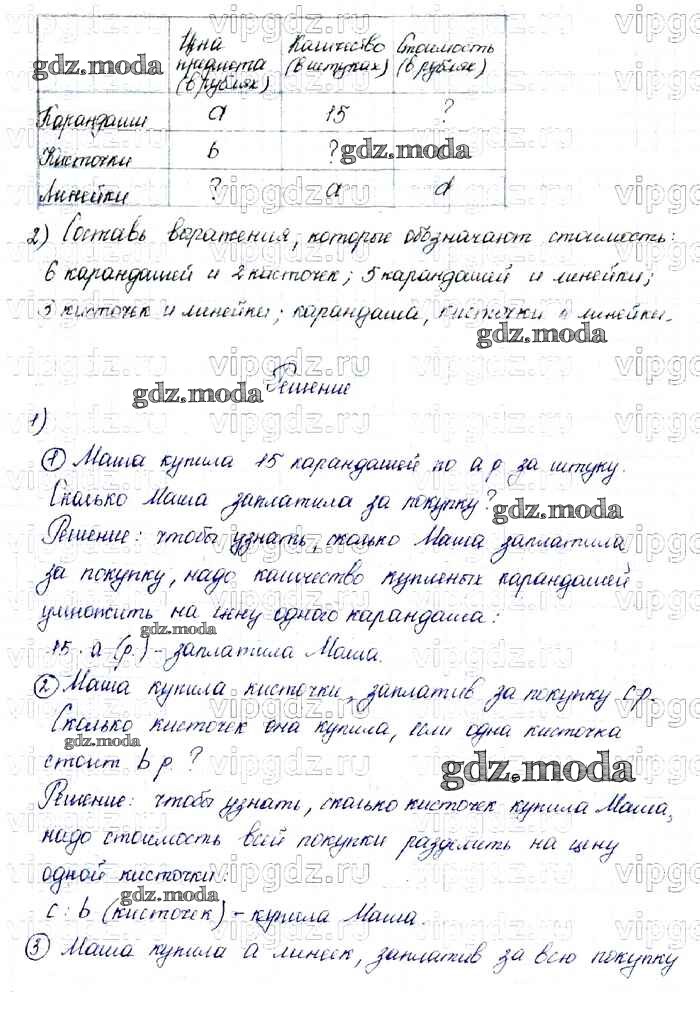 Цена предмета (в рублях) Количество (в штуках) Стоимость (в рублях)
gdz.moda
Карандаши a 15 ?
Кисточки b ? gdz.moda
Линейки ? a d
2) Составь выражения, которые обозначают стоимость:
6 карандашей и 2 касточек; 5 карандашей и линейки;
3 кисточек и линейки; карандаша, кисточки и линейки.
gdz.moda
gdz.moda
Решение
1)
1 Маша купила 15 карандашей по a р за штуку.
Сколько Маша заплатила за покупку?
gdz.moda
Решение: чтобы узнать, сколько Маша заплатила
за покупку, надо количество купленых карандашей
умножить на цену одного карандаша:
gdz.moda
15 · a (р.) – заплатила Маша.
2 Маша купила кисточки, заплатив за покупку c р.
Сколько кисточек она купила, если одна кисточка
gdz.moda
стоит b р.?
gdz.moda
Решение: чтобы узнать, сколько кисточек купила Маша,
надо стоимость всей покупки разделить на цену
одной кисточки:
gdz.moda
c : b (кисточек) – купила Маша.
3 Маша купила a линеек, заплатив за всю покупку
vipgdz.ru